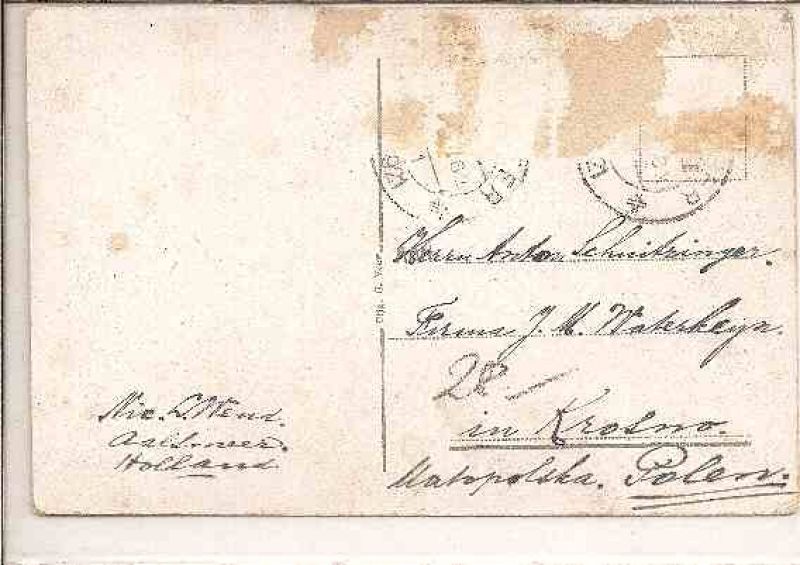 Herrn Anton Schnitzinger.
Firma J. M. Waterkeijn.
28
in Krosno.
Małopolska. Polen.
Nic. L. Wens.
Aalsmeer.
Holland
Uitg. G. Vouw